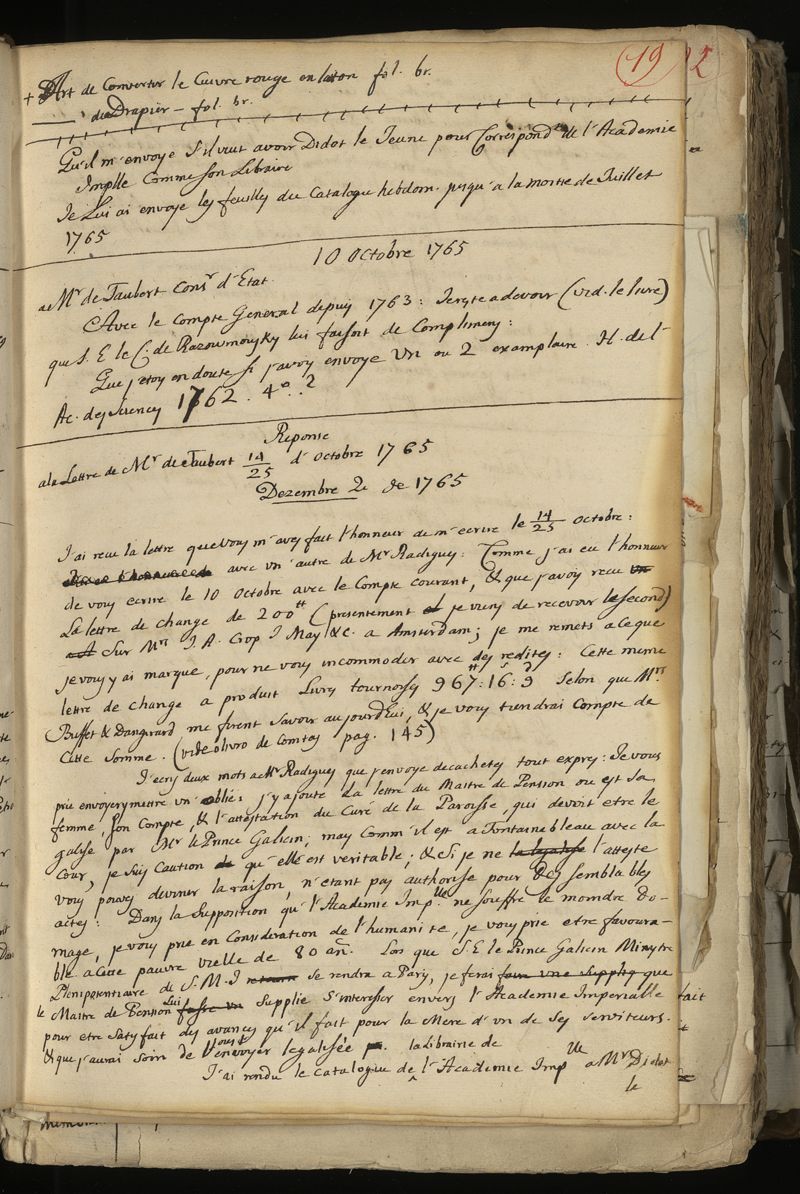 19
+ Art de Convertir le Cuivre rouge en laiton fol. br.
du Drapier – fol. br.
Qu'il m'envoye s'il veut avoir Didot le Jeune pour Correspond.te de l'Academie
Implle Comme son Libraire
Je Lui ai envoye les feuilles du Catalogue hebdom. jusqu'a la moitie de Juillet
1765
10 Octobre 1765
a Mr de Taubert Consr d'Etat.
Avec le Compte General depuis 1763: Je reste a devoir (vid. le livre)
que S. E le C. de Razowmousky lui faisoit de Complimens:
Que j'etoy en doute si j'avoy envoye Un ou 2 exemplaire H. de l'
Ac. des Sciences 1762. 4o..?
Reponse
a la Lettre de Mr de Taubert 14/25 d'Octobre 1765
Dezembre 2 de 1765
J'ai recu la lettre que vous m'aves fait l'honneur de m'ecrire le 14/25 Octobre:
avec un'autre de Mr Radiguey: Comme j'ai eu l'honneur
de vous ecrire le 10 Octobre avec le Compte courant, & que j'avoy recu un
La lettre de change de 200tt (presentement je viens de recevoir le second)
sur Mrs J. A. Crop J May &c. a Amsterdam; je me remets a Ce que
je vous y ai marque, pour ne vous incommoder avec des redites: Cette meme
lettre de change a produit Livrs tournoiss 967tt:16s:9d selon que Mrs
Buffet & Dangirard me firent savoir aujourd'hui, & je vous tiendrai Compte de
Cette somme. (vide o livro de Comtas pag. 145)
J'ecris deux mots a Mr Radiguey que j'envoye decachetes tout expres: Je vous
prie envoyer y mettre un oblié: j'y ajoute la lettre du Maitre de Pension ou est sa
femme, son Compte, & l'attestation du Curé de la Paroisse, qui devoit etre le
galise par Mr le Prince Galicin; mais Comm'il est a Fontainebleau avec la
Cour, je suis Caution de qu'elle est veritable; & si je ne la legalise l'atteste
vous pouves deviner la raison, n'etant pas authorise pour des semblables
actes: Dans la supposition qu'l'Academie Implle ne souffre le moindre Do-
mage, je vous prie en Consideration de l'humanite, je vous prie etre favoura-
ble a Cette pauvre vielle de 80 an. Lors que S. E le Prince Galicin Ministre
Plenipotentiaire de S. M. I retourn se rendra a Paris, je ferai faire une Suppliq que
le Maitre de Pension lui fasse un Supplie s'interesser envers l'Academie Imperialle
pour etre satisfait des avances qu'il fait pour la Mere d'un de ses serviteurs.
& que j'aurai soin de vous l'envoyer legalisée
J'ai rendu le Catalogue de la Librairie de l'Academie Implle a Mr Didot
le